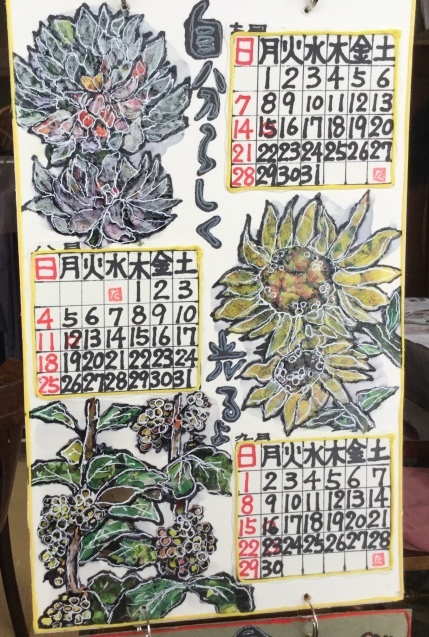 自分らしく
七月
日月火水木金土
1 2 3 4 5 6
7 8 9 10 11 12 13
14 15 16 17 18 19 20
21 22 23 24 25 26 27
28 29 30 31
八月
日月火水木金土
1 2 3
4 5 6 7 8 9 10
11 12 13 14 15 16 17
18 19 20 21 22 23 24
25 26 27 28 29 30 31
光るよ
九月
日月火水木金土
1 2 3 4 5 6 7
8 9 10 11 12 13 14
15 16 17 18 19 20 21
22 23 24 25 26 27 28
29 30